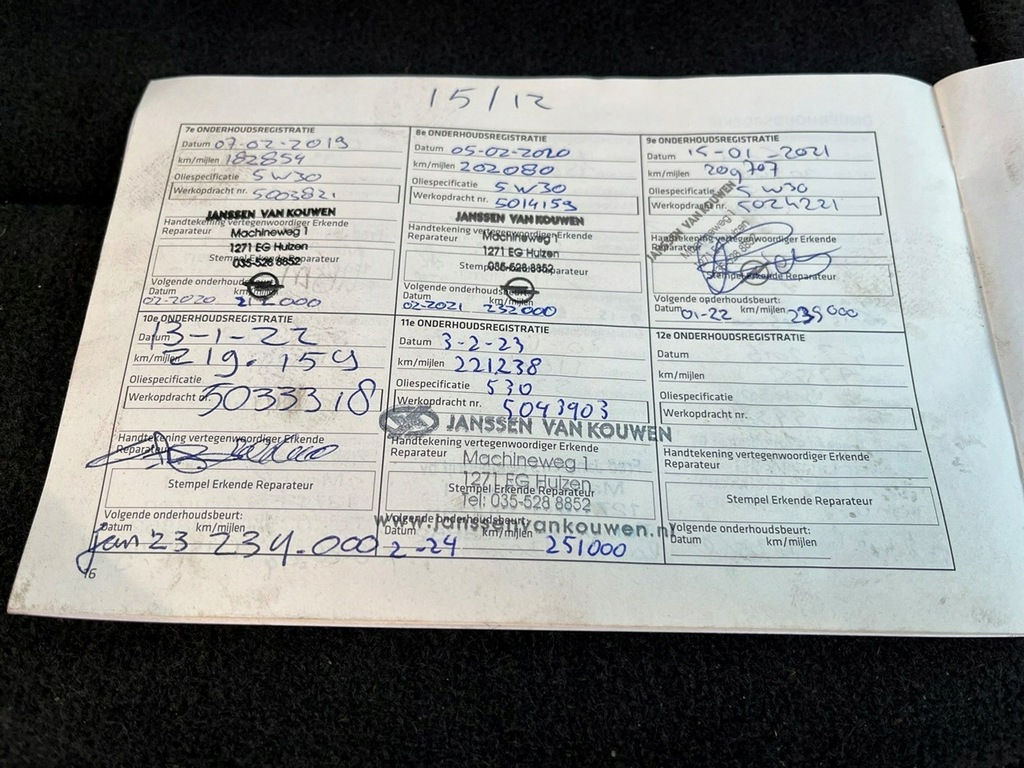 15/12
7e ONDERHOUDSREGISTRATIE
Datum 07-02-2019
km/mijlen 182854
Oliespecificatie 5W30
Werkopdracht nr. 5003821
JANSSEN VAN KOUWEN
Handtekening vertegenwoordiger Erkende
Reparateur Machineweg 1
1271 EG Huizen
Stempel Erkende Reparateur
035-528 8852
Volgende onderhoudsbeurt:
Datum km/mijlen
02-2020 212000
8e ONDERHOUDSREGISTRATIE
Datum 05-02-2020
km/mijlen 202080
Oliespecificatie 5W30
Werkopdracht nr. 5014159
JANSSEN VAN KOUWEN
Handtekening vertegenwoordiger Erkende
Reparateur Machineweg 1
1271 EG Huizen
Stempel Erkende Reparateur
035-528 8852
Volgende onderhoudsbeurt:
Datum km/mijlen
02-2021 232000
9e ONDERHOUDSREGISTRATIE
Datum 15-01-2021
km/mijlen 209707
Oliespecificatie 5W30
Werkopdracht nr. 5024221
JANSSEN VAN KOUWEN
Machineweg 1
1271 EG Huizen
035-528 8852
Handtekening vertegenwoordiger Erkende
Reparateur
Stempel Erkende Reparateur
Volgende onderhoudsbeurt:
Datum 01-22 km/mijlen 239000
10e ONDERHOUDSREGISTRATIE
Datum 13-1-22
km/mijlen 219.159
Oliespecificatie
Werkopdracht nr. 5033318
Handtekening vertegenwoordiger Erkende
Reparateur
Stempel Erkende Reparateur
Volgende onderhoudsbeurt:
Datum km/mijlen
jan 23 234.000
11e ONDERHOUDSREGISTRATIE
Datum 3-2-23
km/mijlen 221238
Oliespecificatie 530
Werkopdracht nr. 5043903
JANSSEN VAN KOUWEN
Handtekening vertegenwoordiger Erkende
Reparateur Machineweg 1
1271 EG Huizen
Stempel Erkende Reparateur
Tel: 035-528 8852
Volgende onderhoudsbeurt:
www.janssenvankouwen.nl
Datum km/mijlen
2-24 251000
12e ONDERHOUDSREGISTRATIE
Datum
km/mijlen
Oliespecificatie
Werkopdracht nr.
Handtekening vertegenwoordiger Erkende
Reparateur
Stempel Erkende Reparateur
Volgende onderhoudsbeurt:
Datum km/mijlen
16